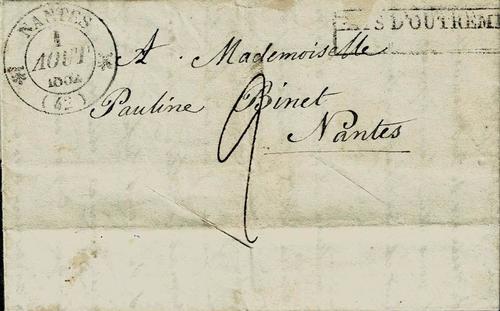 NANTES
1
AOUT
(42)
PAYS D'OUTREMER
A Mademoiselle
Pauline Binet
Nantes
2